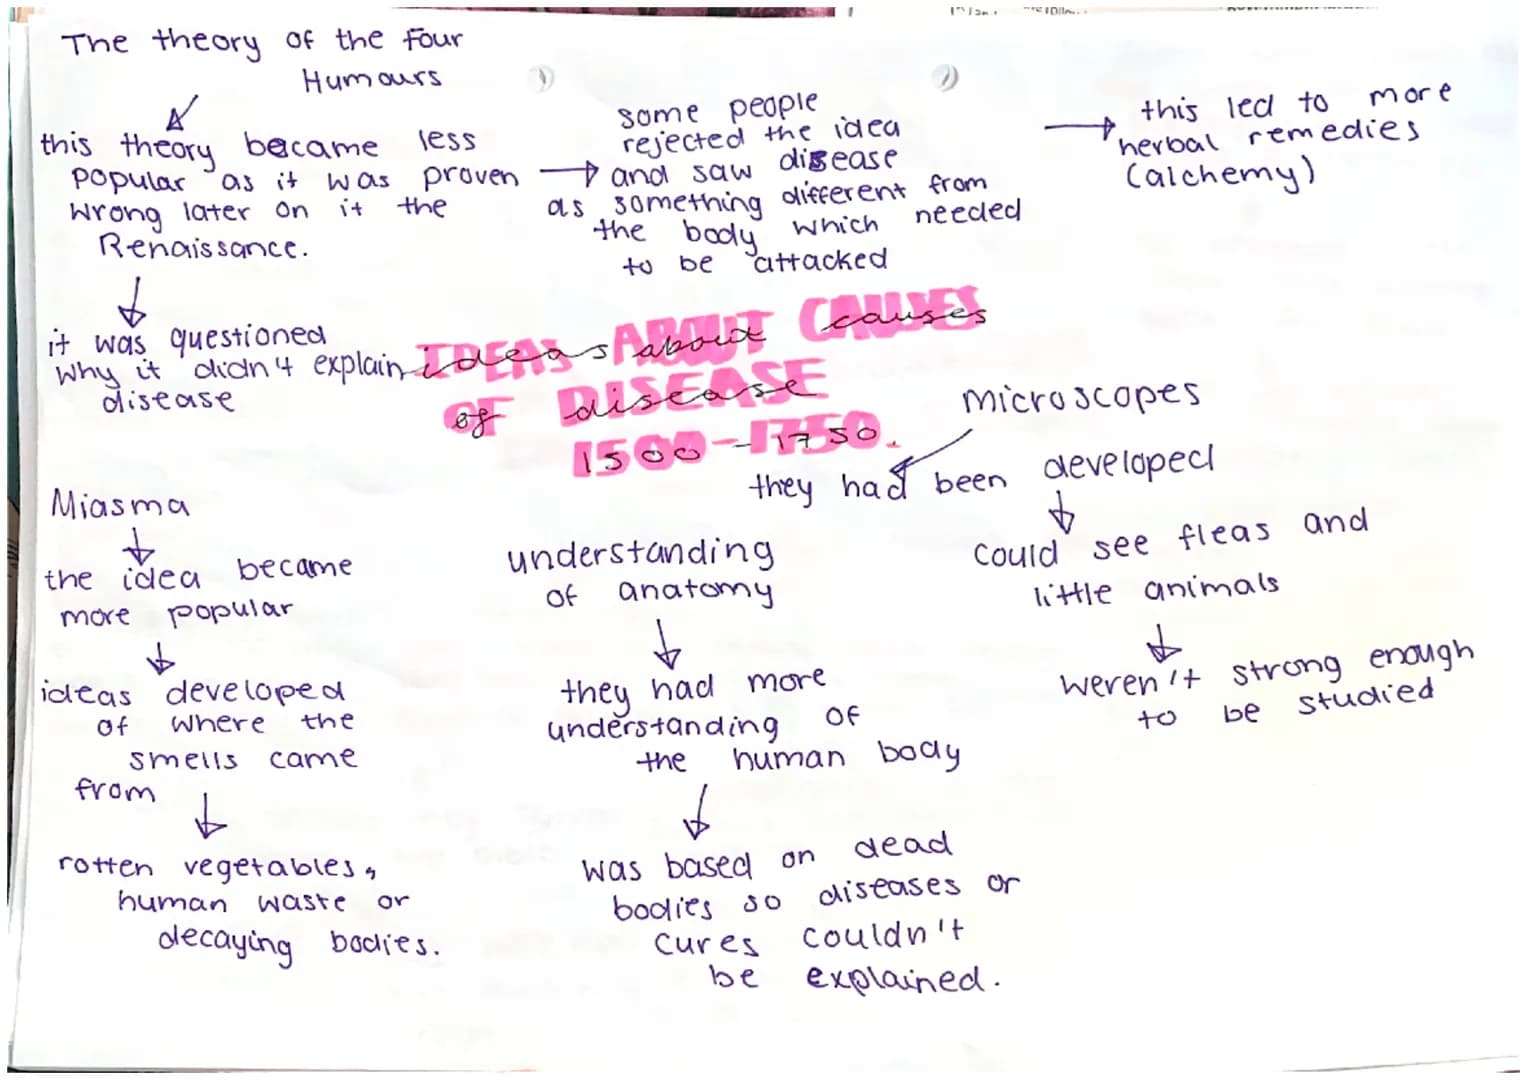 The theory of the four
Humours
this theory became less
popular as it was proven
wrong later on it the
Renaissance.
it was questioned
why it didn't explain
disease
some people
rejected the idea
and saw disease
as something different from
the body which needed
to be attacked
this led to more
herbal remedies
(alchemy)
IDEAS ABOUT CAUSES
ideas about causes
OF DISEASE
of disease
1500-1750.
1500-1750.
Miasma
the idea became
more popular
ideas developed
of where the
smells came
from
rotten vegetables,
human waste or
decaying bodies.
understanding
of anatomy
they had more
understanding of
the human body
was based on dead
bodies so diseases or
cures couldn't
be explained.
microscopes
they had been developed
could see fleas and
little animals
weren't strong enough
to be studied